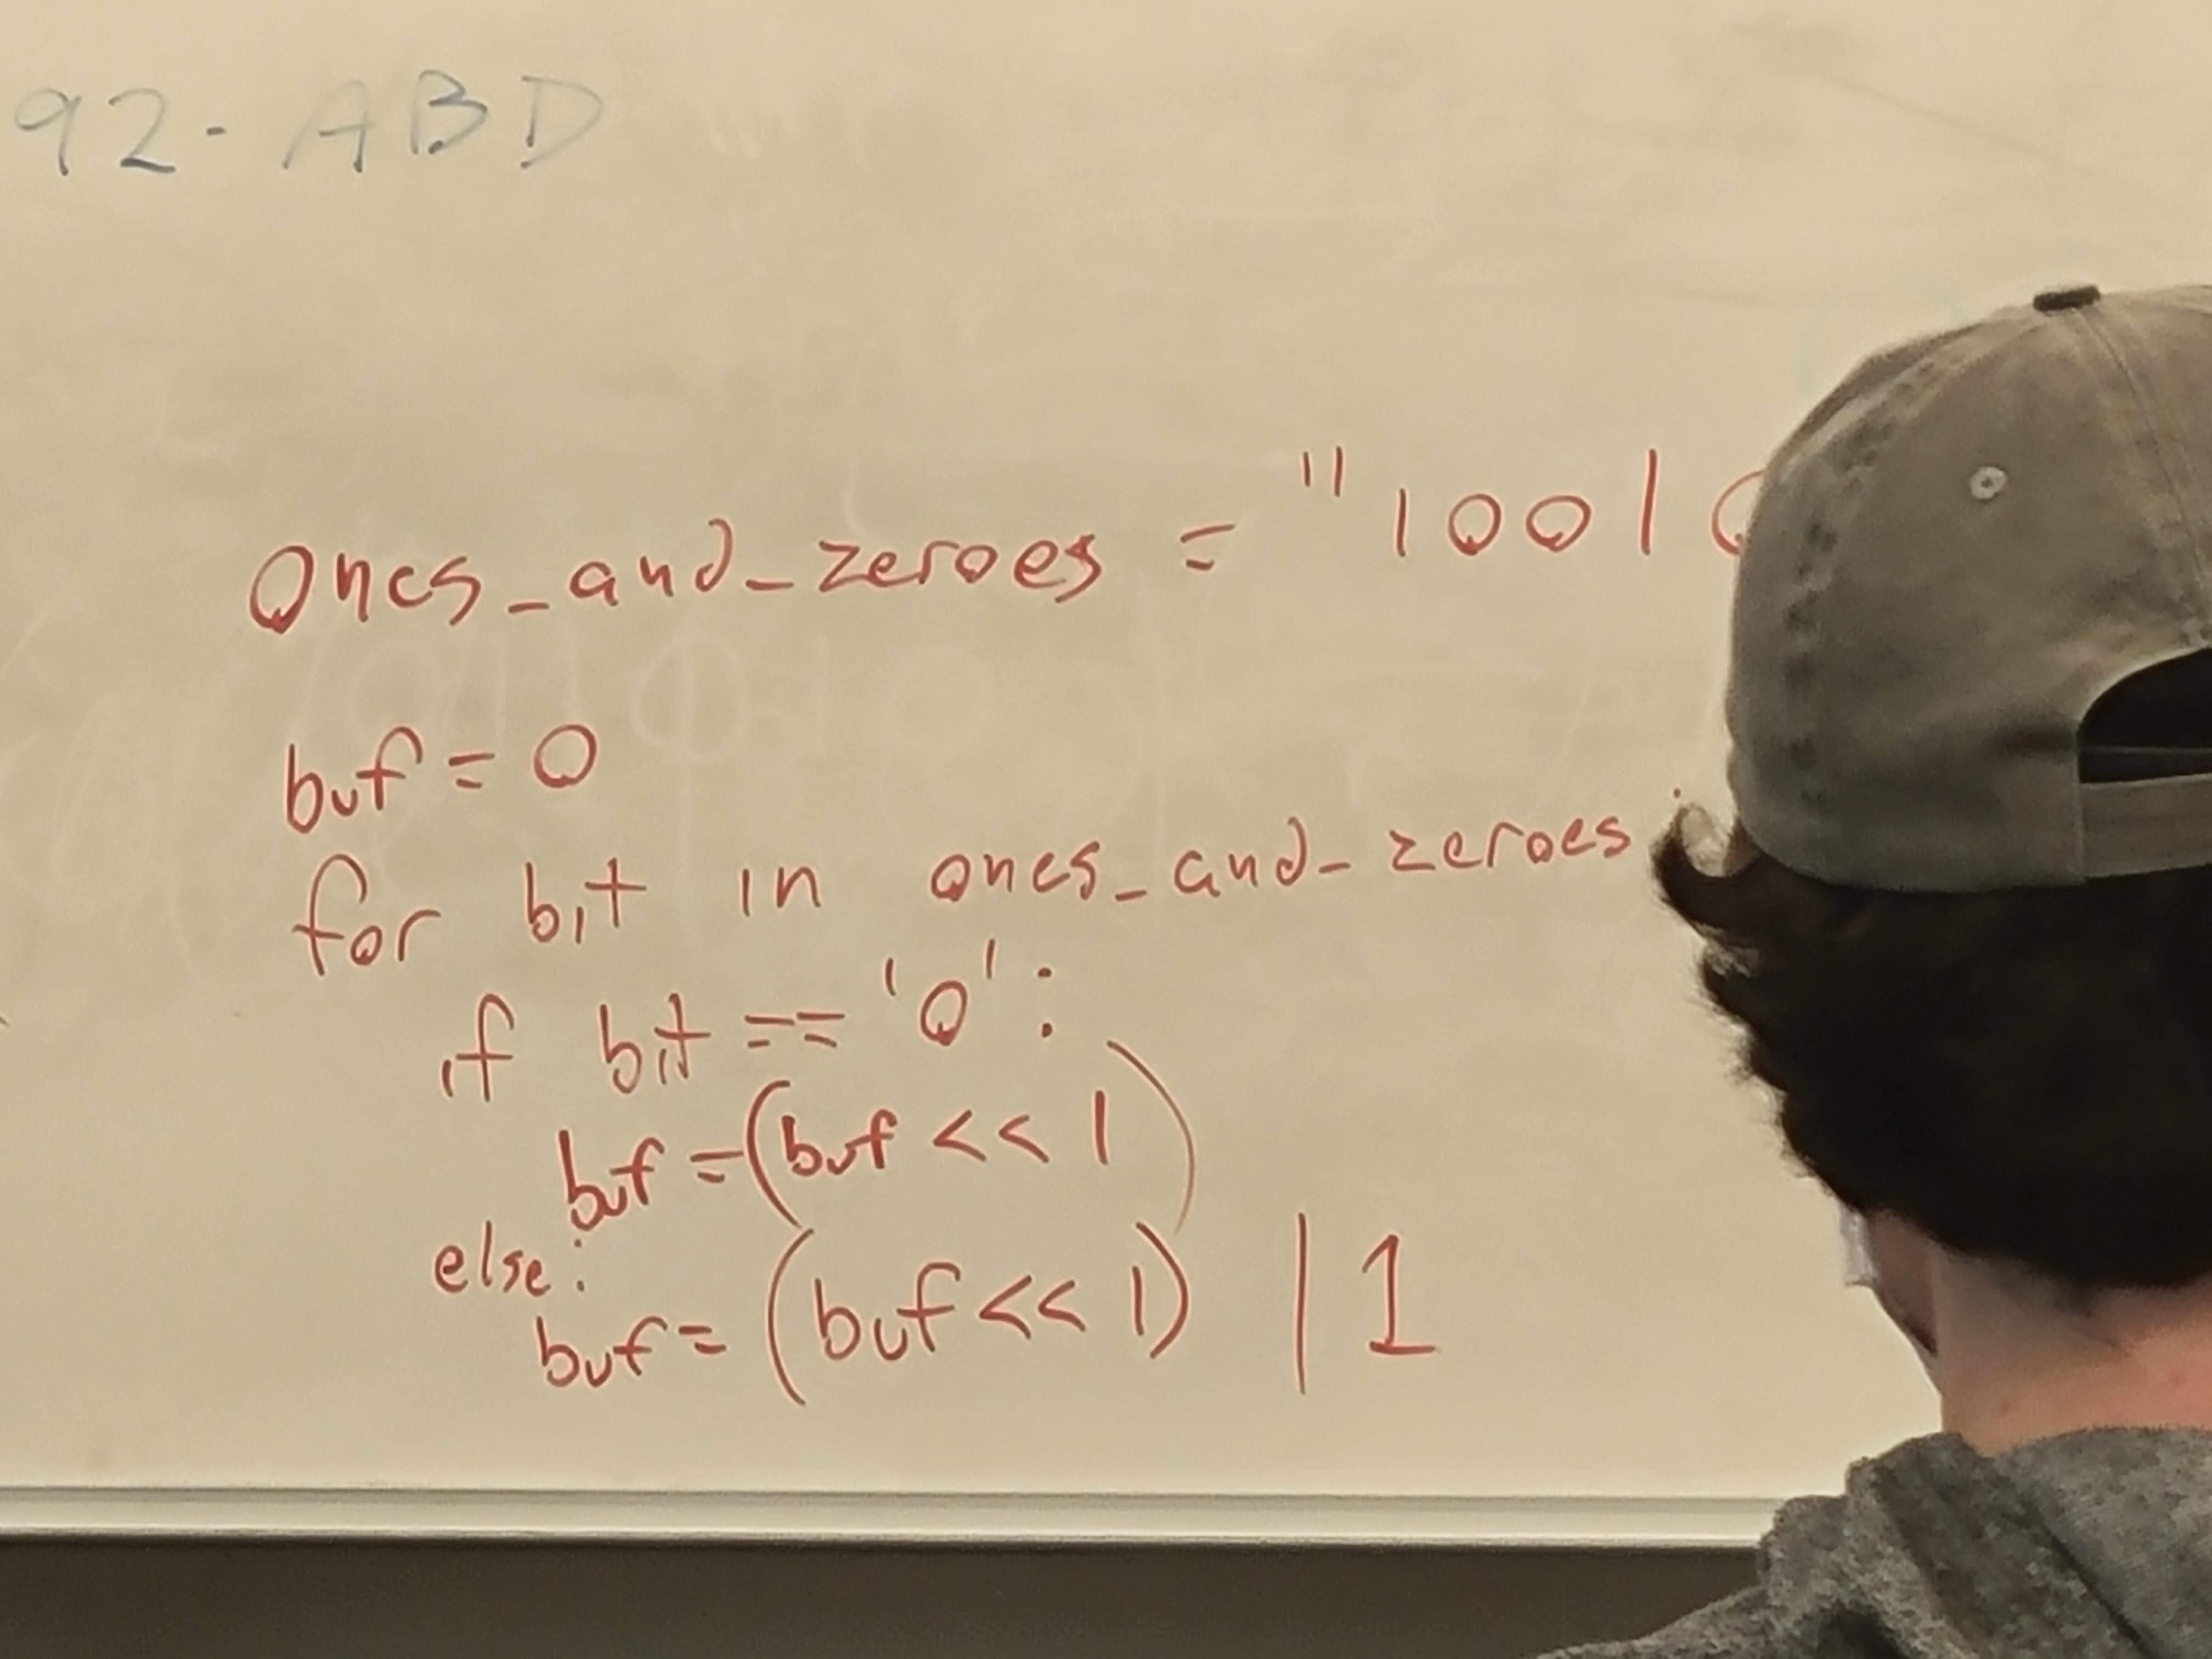 92. ABD
ones_and_zeroes = "1001
buf = 0
for bit in ones_and_zeroes:
if bit == '0':
buf = (buf << 1)
else:
buf = (buf << 1) | 1